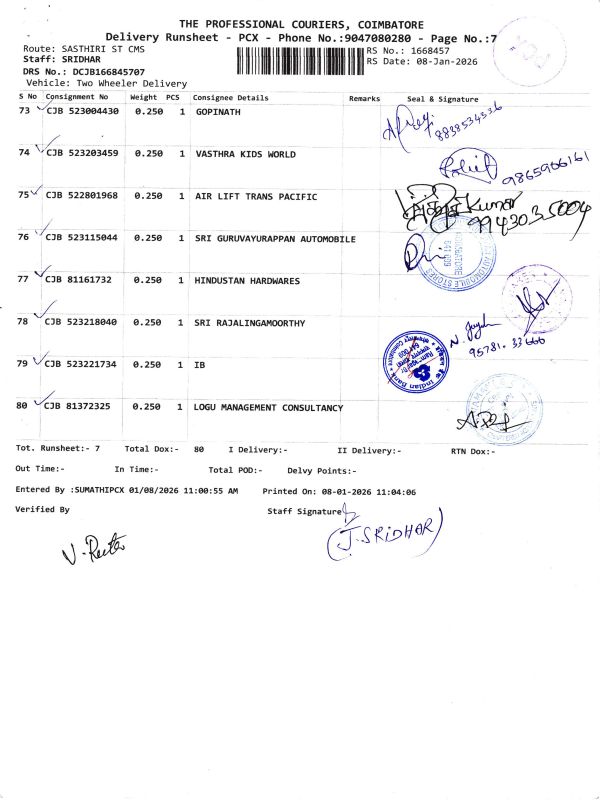 THE PROFESSIONAL COURIERS, COIMBATORE
Delivery Runsheet - PCX - Phone No.:9047080280 - Page No.:7
Route: SASTHIRI ST CMS
RS No.: 1668457
Staff: SRIDHAR
RS Date: 08-Jan-2026
DRS No.: DCJB166845707
Vehicle: Two Wheeler Delivery
S No Consignment No Weight PCS Consignee Details Remarks Seal & Signature
73 CJB 523004430 0.250 1 GOPINATH
8838534536
74 CJB 523203459 0.250 1 VASTHRA KIDS WORLD
9865966161
75 CJB 522801968 0.250 1 AIR LIFT TRANS PACIFIC
Kumar
9943035004
76 CJB 523115044 0.250 1 SRI GURUVAYURAPPAN AUTOMOBILE
77 CJB 81161732 0.250 1 HINDUSTAN HARDWARES
78 CJB 523218040 0.250 1 SRI RAJALINGAMOORTHY
95781.33666
79 CJB 523221734 0.250 1 IB
Indian Bank
80 CJB 81372325 0.250 1 LOGU MANAGEMENT CONSULTANCY
Tot. Runsheet:- 7 Total Dox:- 80 I Delivery:- II Delivery:- RTN Dox:-
Out Time:- In Time:- Total POD:- Delvy Points:-
Entered By :SUMATHIPCX 01/08/2026 11:00:55 AM Printed On: 08-01-2026 11:04:06
Verified By Staff Signature
(J.SRIDHAR)